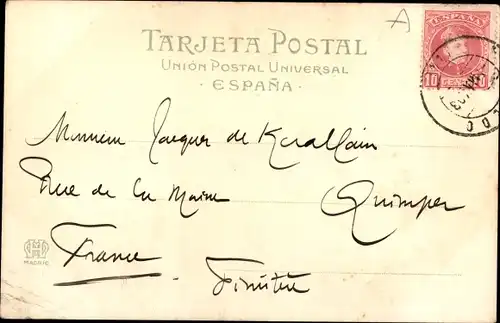 A
TARJETA POSTAL
UNIÓN POSTAL UNIVERSAL
· ESPAÑA ·
ESPAÑA
10 10
Monsieur Jacques de Kerallain
Rue de la Mairie
Quimper
France
Finistère
MADRID